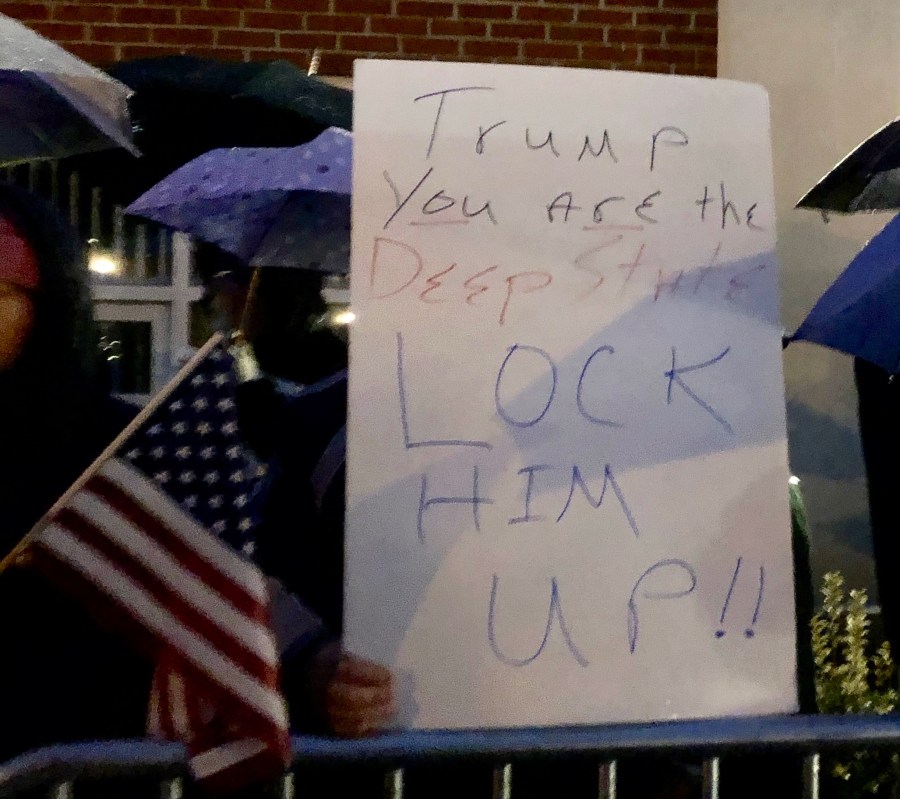 Trump
You are the
Deep State
LOCK
HIM
UP!!